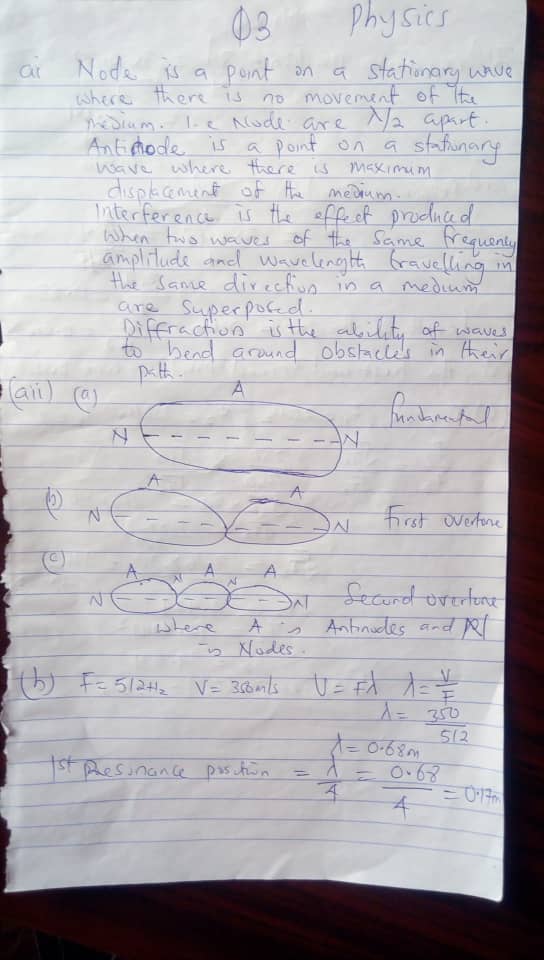 Q3 Physics
ai Node is a point on a stationary wave
where there is no movement of the
medium. I.e Node are λ/2 apart.
Antinode is a point on a stationary
wave where there is maximum
displacement of the medium.
Interference is the effect produced
when two waves of the same frequency
amplitude and wavelength travelling in
the same direction in a medium
are superposed.
Diffraction is the ability of waves
to bend around obstacles in their
path.
(aii) (a) A
N N fundamental
(b) A A
N N first overtone
(c) A N A N A
N N Second overtone
where A is Antinodes and N
is Nodes.
(b) F= 512Hz V= 350m/s V= Fλ λ= V/F
λ= 350/512
λ= 0.68m
1st Resonance position = λ/4 = 0.68/4 = 0.17m